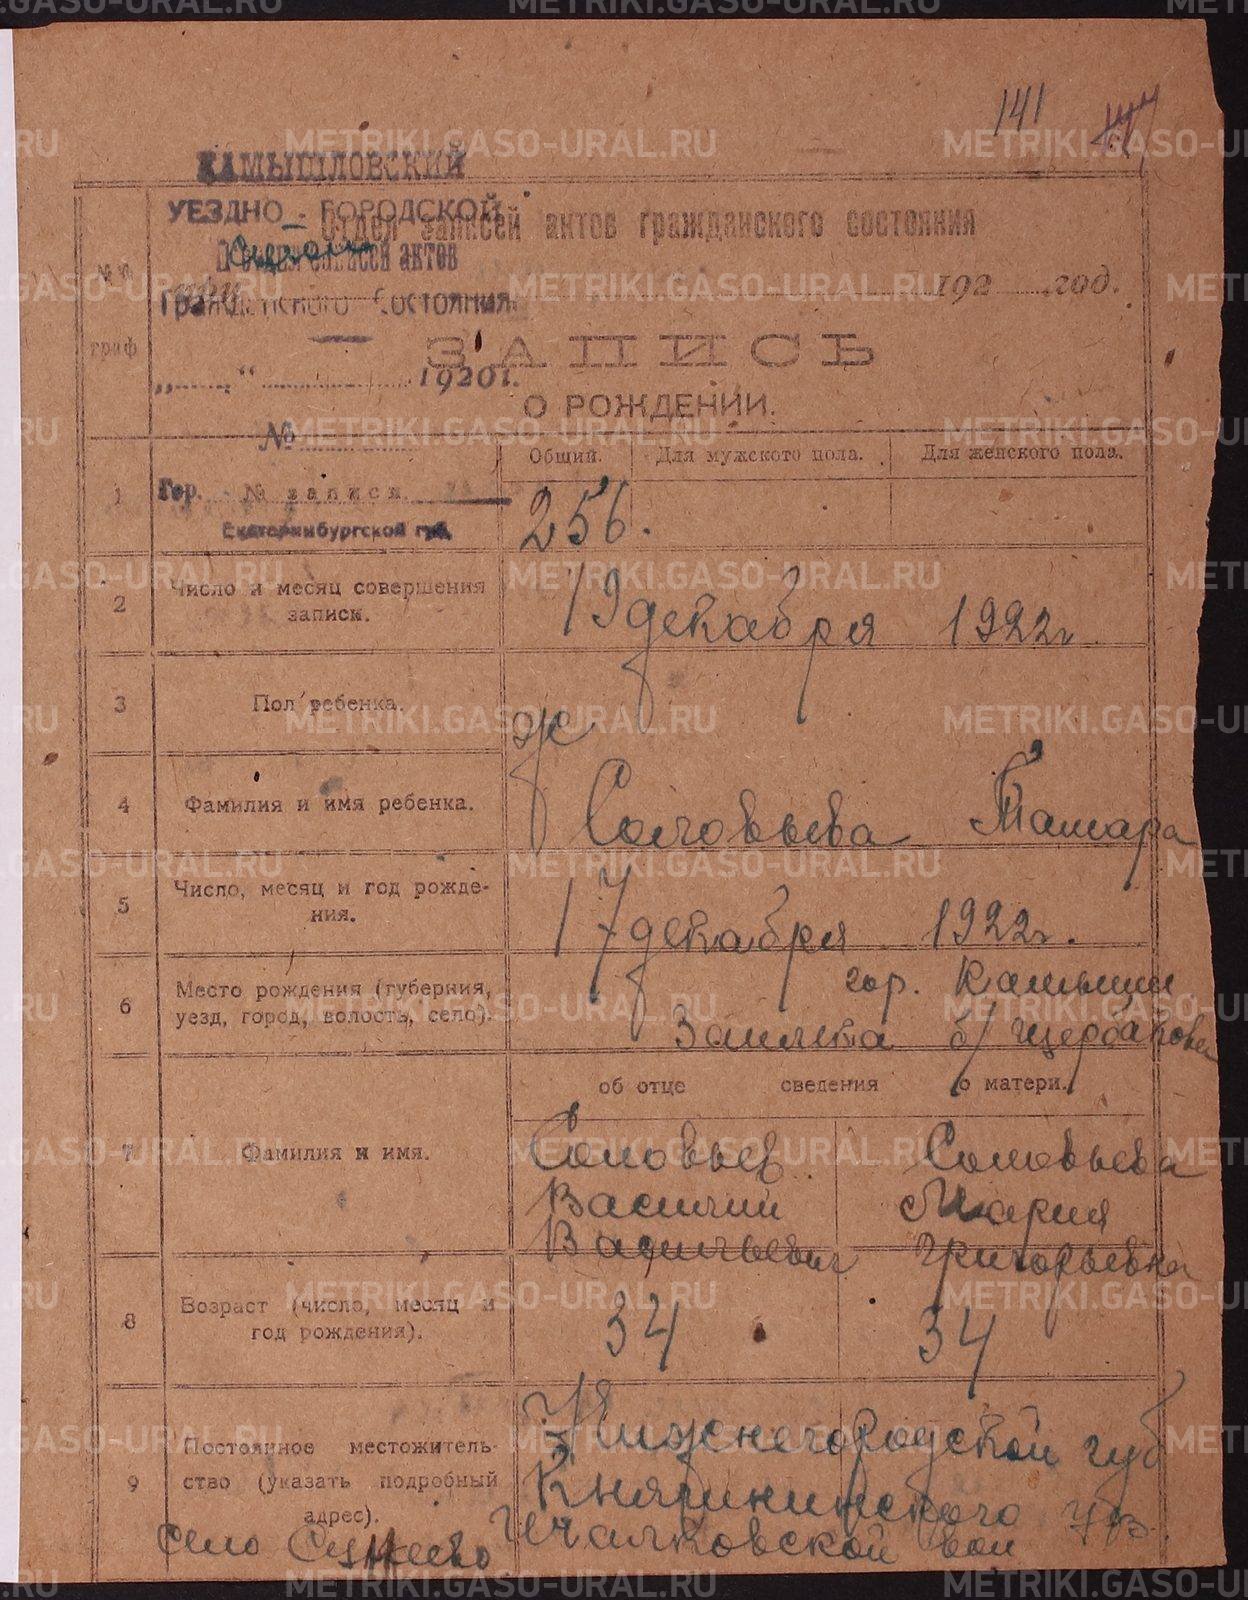 141
КАМЫШЛОВСКИЙ
УЕЗДНО - ГОРОДСКОЙ
Отдел записей актов гражданского состояния
Отдел записей актов
Гражданского Состояния
192 год.
№ №
граф
ЗАПИСЬ
„ “ 1920 г.
О РОЖДЕНИИ.
№
Общий. Для мужского пола. Для женского пола.
1 Гор. № записи
Екатеринбургской губ.
256.
2 Число и месяц совершения записи.
19 декабря 1922 г.
3 Пол ребенка.
ж
4 Фамилия и имя ребенка.
Соловьева Тамара
5 Число, месяц и год рождения.
17 декабря 1922 г.
6 Место рождения (губерния, уезд, город, волость, село).
гор. Камышл
Заимка б/ Щербакова
об отце сведения о матери.
7 Фамилия и имя.
Соловьев Соловьева
Василий Мария
Васильевич Григорьевна
8 Возраст (число, месяц и год рождения).
34 34
9 Постоянное местожительство (указать подробный адрес).
Нижнегородской губ
Княгининского уез.
Чечалковской вол
село
METRIKI.GASO-URAL.RU